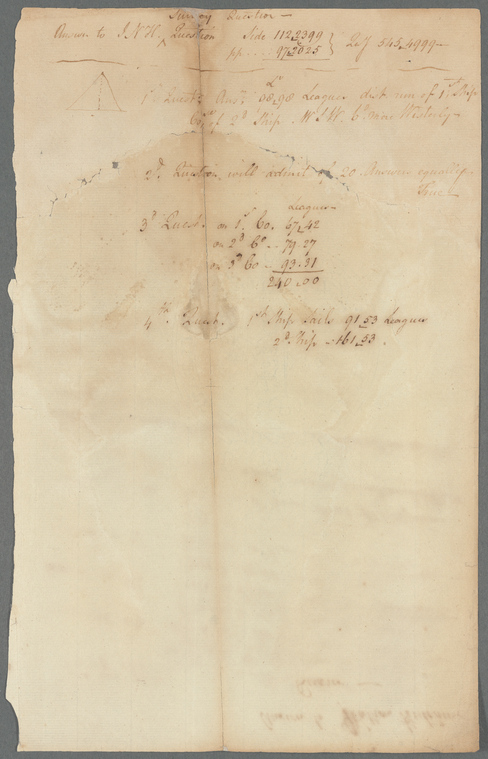 Survey Question —
Answr. to J. N. W. Question Side 112.2399
pp . . . . 97.2025 545.4999 —
1st Questn. Ansr. 88.98 Leagues dist. run of 1st Ship
of 2d. Ship W. more Westerly —
2d. Question, will admit of 20 Answers equally
True —
Leagues —
3d Quest. on 1st Co. 67.42
on 2d Co . . 79.27
on 3d Co . . 93.31
240.00
4th. Quest. 1st Ship sails 91.53 Leagues
2d. Ship . . 161.53 .